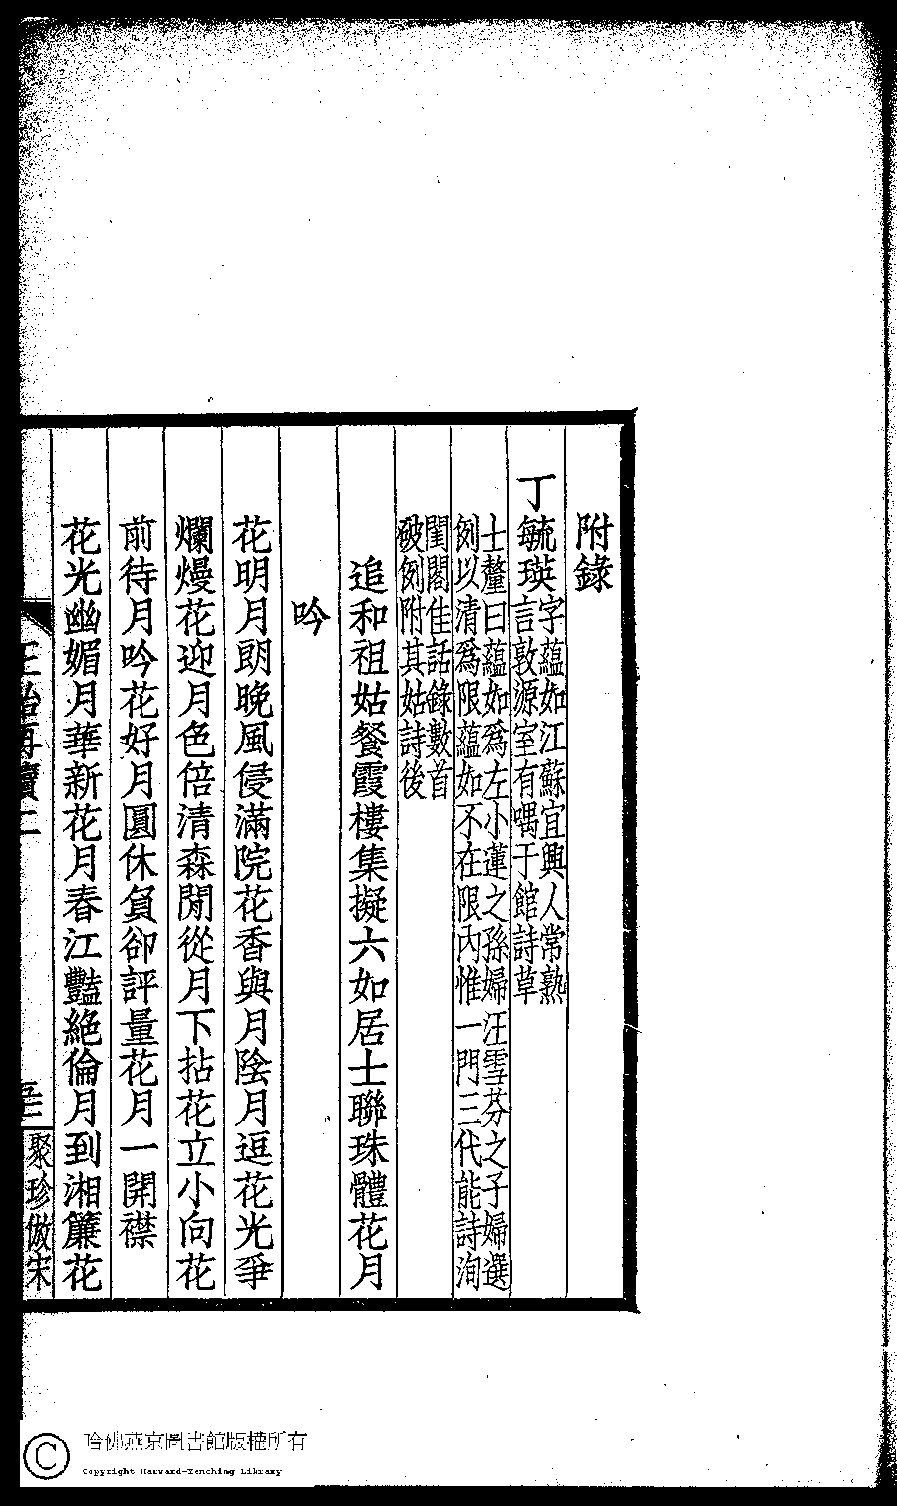 附錄
丁毓瑛字蘊如江蘇宜興人常熟
言敦源室有喁于館詩草
士釐曰蘊如爲左小蓮之孫婦汪雪芬之子婦選
例以清爲限蘊如不在限內惟一門三代能詩洵
閨閣佳話錄數首
破例附其姑詩後
追和祖姑餐霞樓集擬六如居士聯珠體花月
吟
花明月朗晚風侵滿院花香與月陰月逗花光爭
爛熳花迎月色倍清森閒從月下拈花立小向花
前待月吟花好月圓休負卻評量花月一開襟
花光幽媚月華新花月春江豔絕倫月到湘簾花
聚珍倣宋
哈佛燕京圖書館版權所有
Copyright Harvard-Yenching Library